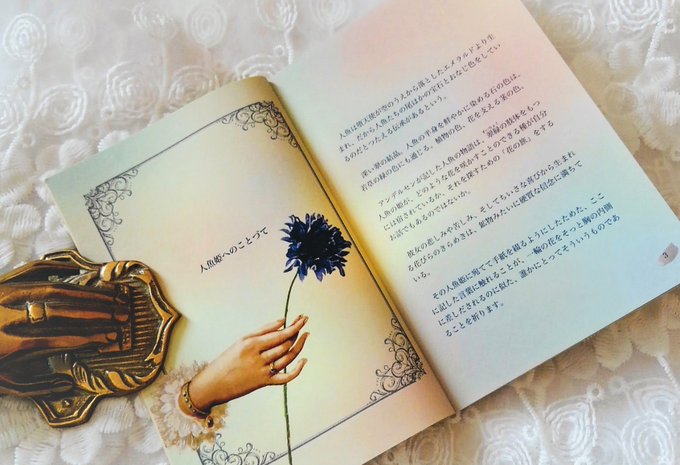 人魚姫へのことづて
人魚は堕天使が空のうえから落としたエメラルドより生
まれ、だから人魚たちの尾はかの宝石とおなじ色をしてい
るのだとつたえる伝承があるという。
深い碧の結晶。人魚の半身を鮮やかに染める石の色は、
若草の緑の色にも通じる。植物の色。花を支える茎の色。
アンデルセンが記した人魚の物語は、翠緑の肢体をもつ
人魚の姫が、どのような花を咲かすことのできる種が自分
には宿されているか、それを探すための「花の旅」をする
お話でもあるのではないか。
彼女の悲しみや苦しみ、そしてちいさな喜びから生まれ
る花びらのきらめきは、鉱物みたいに硬質な信念に満ちて
いる。
その人魚姫に宛てて手紙を綴るようにしたためた、ここ
に記した言葉に触れることが、一輪の花をそっと胸の内側
に差しだされるのに似た、誰かにとってそういうものであ
ることを祈ります。
3